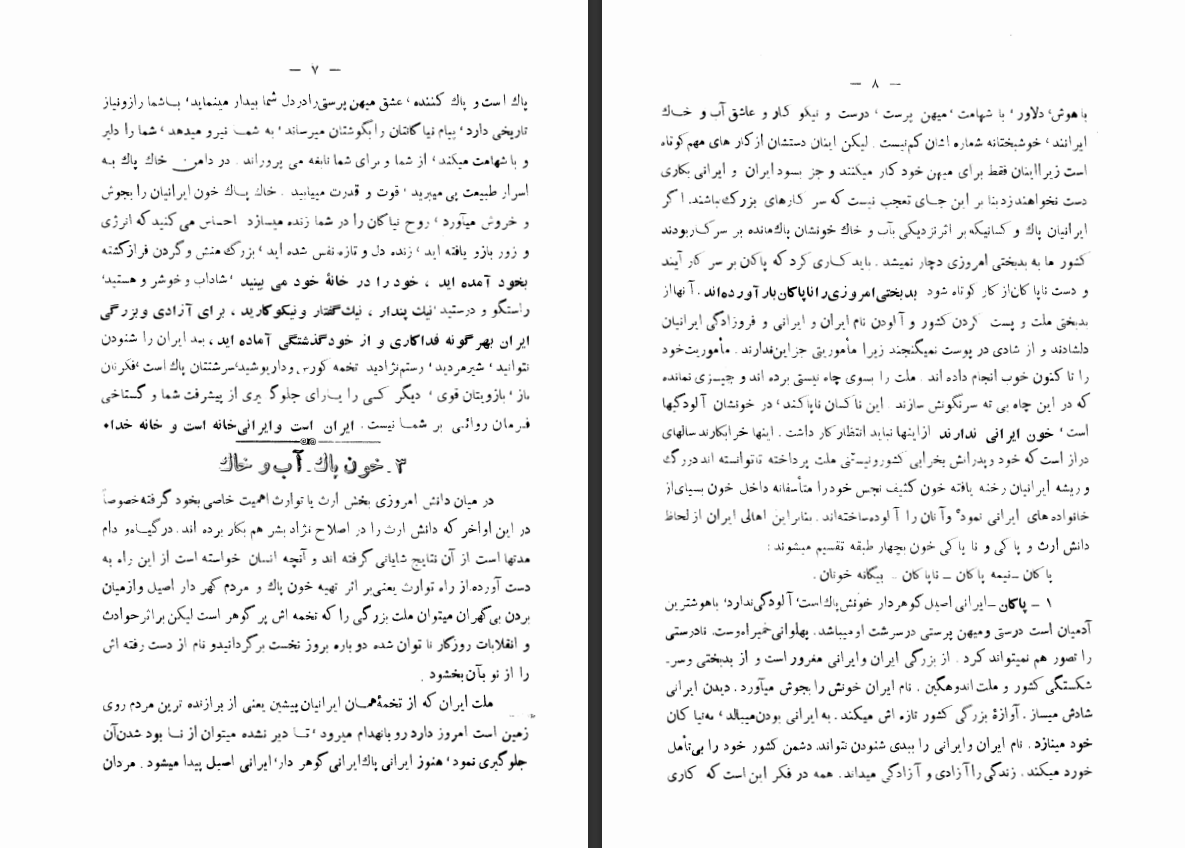 — ۷ —
پاك است و پاك کننده، عشق میهن پرستی را در دل شما بیدار مینماید، با شما راز و نیاز
تاریخی دارد، پیام نیا کانتان را بگوشتان میرساند، به شما نیرو میدهد، شما را دلیر
و با شهامت میکند، از شما و برای شما نابغه می پروراند. در دامن خاك پاك به
اسرار طبیعت پی میبرید، قوت و قدرت مییابید. خاك پاك خون ایرانیان را بجوش
و خروش میآورد، روح نیاکان را در شما زنده میسازد احساس می کنید که انرژی
و زور بازو یافته اید، زنده دل و تازه نفس شده اید، بزرك منش و گردن فراز گشته
بخود آمده اید، خود را در خانهٔ خود می بینید، شاداب و خوشر و هستید،
راستگو و درستید، نیك پندار، نیك گفتار و نیکو کارید، برای آزادی و بزرگی
ایران بهر گونه فداکاری و از خود گذشتگی آماده اید، بد ایران را شنودن
نتوانید، شیر مردید، رستم نژادید تخمه کورس و داریوشید، سرشتتان پاك است، فکرتان
باز، بازویتان قوی، دیگر کسی را یارای جلوگیری از پیشرفت شما و گستاخی
فرمان روائی بر شما نیست. ایران است و ایرانی خانه است و خانه خدا.
۳ـ خون پاك ـ آب و خاك
در میان دانش امروزی بخش ارث یا توارث اهمیت خاصی بخود گرفته خصوصاً
در این اواخر که دانش ارث را در اصلاح نژاد بشر هم بکار برده اند. در گیاه و دام
مدتها است از آن نتایج شایانی گرفته اند و آنچه انسان خواسته است از این راه به
دست آورده. از راه توارث یعنی بر اثر تهیه خون پاك و مردم گهر دار اصیل و از میان
بردن بی گهران میتوان ملت بزرگی را که تخمه اش پر گوهر است لیکن بر اثر حوادث
و انقلابات روزگار نا توان شده دوباره بروز نخست برگردانید و نام از دست رفته اش
را از نو بآن بخشود.
ملت ایران که از تخمهٔ همان ایرانیان پیشین یعنی از برازنده ترین مردم روی
زمین است امروز دارد رو بانهدام میرود، تا دیر نشده میتوان از نا بود شدن آن
جلوگیری نمود، هنوز ایرانی پاك ایرانی گوهر دار، ایرانی اصیل پیدا میشود. مردان
— ۸ —
با هوش، دلاور، با شهامت، میهن پرست، درست و نیکو کار و عاشق آب و خاك
ایرانند، خوشبختانه شماره اشان کم نیست. لیکن اینان دستشان از کار های مهم کوتاه
است زیرا اینان فقط برای میهن خود کار میکنند و جز بسود ایران و ایرانی بکاری
دست نخواهند زد بنا بر این جای تعجب نیست که سر کارهای بزرك نباشند. اگر
ایرانیان پاك و کسانیکه بر اثر نزدیکی بآب و خاك خونشان پاك مانده بر سر کار بودند
کشور ما به بدبختی امروزی دچار نمیشد. باید کاری کرد که پاکان بر سر کار آیند
و دست ناپاکان از کار کوتاه شود بدبختی امروزی را ناپاکان بار آورده اند. آنها از
بدبختی ملت و پست کردن کشور و آلودن نام ایران و ایرانی و فروزادگی ایرانیان
دلشادند و از شادی در پوست نمیگنجند زیرا مأموریتی جز این ندارند. مأموریت خود
را تا کنون خوب انجام داده اند. ملت را بسوی چاه نیستی برده اند و چیزی نمانده
که در این چاه بی ته سرنگونش سازند. این ناکسان ناپاکند، در خونشان آلودگیها
است، خون ایرانی ندارند از اینها نباید انتظار کار داشت. اینها خرابکارند سالهای
دراز است که خود و پدرانش بخرابی کشور و نیستی ملت پرداخته تا توانسته اند در رك
و ریشه ایرانیان رخنه یافته خون کثیف نجس خود را متأسفانه داخل خون بسیای از
خانواده های ایرانی نموده و آنان را آلوده ساخته اند. بنابر این اهالی ایران از لحاظ
دانش ارث و پا کی و نا پا کی خون بچهار طبقه تقسیم میشوند:
پا کان ـ نیمه پا کان ـ ناپا کان ـ بیگانه خونان.
۱ ـ پاکان ـ ایرانی اصیل گوهر دار خونش پاك است، آلودگی ندارد، با هوشترین
آدمیان است درستی و میهن پرستی در سرشت او میباشد. پهلوانی خمیره اوست. نادرستی
را تصور هم نمیتواند کرد. از بزرگی ایران و ایرانی مغرور است و از بدبختی و سر-
شکستگی کشور و ملت اندوهگین. نام ایران خونش را بجوش میآورد. دیدن ایرانی
شادش میساز. آوازهٔ بزرگی کشور تازه اش میکند. به ایرانی بودن میبالد، به نیا کان
خود مینازد. نام ایران و ایرانی را ببدی شنودن نتواند. دشمن کشور خود را بی تأمل
خورد میکند. زندگی را آزادی و آزادگی میداند. همه در فکر این است که کاری